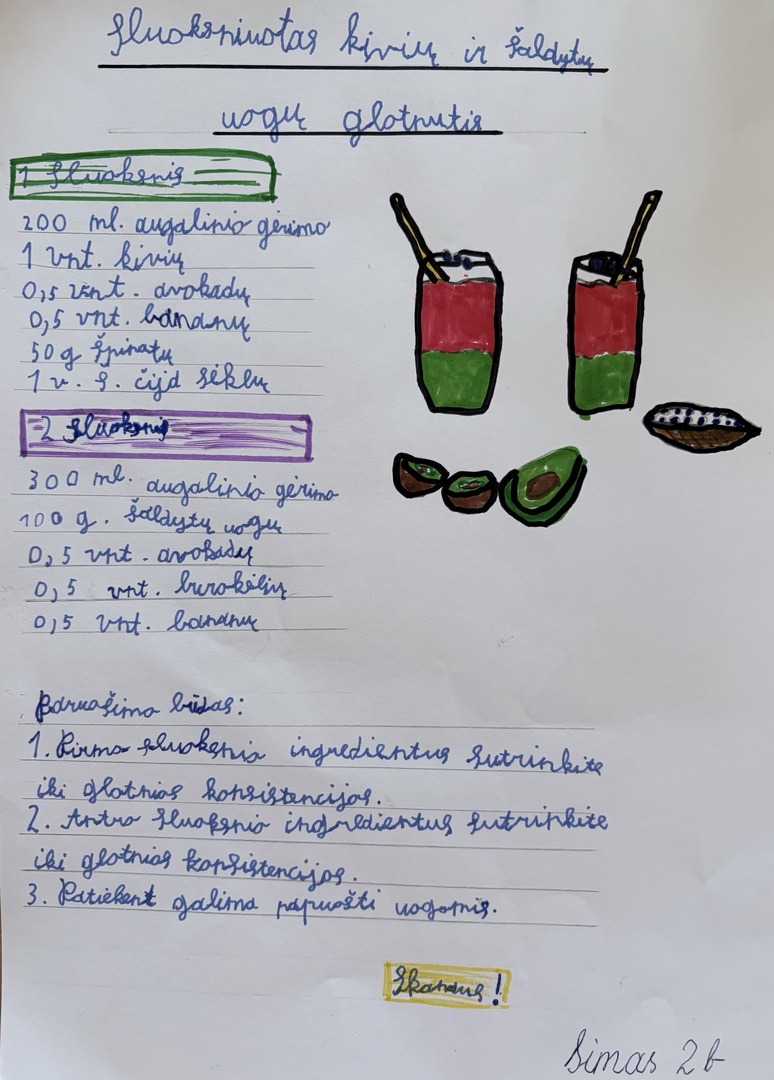 Sluoksniuotas kivių ir šaldytų
uogų glotnutis
1 sluoksnis
200 ml. augalinio gėrimo
1 vnt. kivių
0,5 vnt. avokadų
0,5 vnt. bananų
50 g špinatų
1 v. š. čijd sėklų
2 sluoksnis
300 ml. augalinio gėrimo
100 g. šaldytų uogų
0,5 vnt. avokadų
0,5 vnt. burokėlių
0,5 vnt. bananų
Paruošimo būdas:
1. Pirmo sluoksnio ingredientus sutrinkite
iki glotnios konsistencijos.
2. Antro sluoksnio ingredientus sutrinkite
iki glotnios konsistencijos.
3. Patiekent galima papuošti uogomis.
Skanaus!
Simas 2b